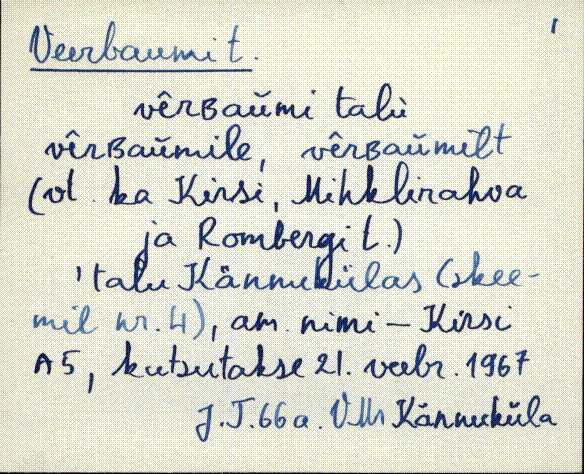 Veerbaumi t.
vêrʙaŭmi talù
vêrʙaŭmile, vêrʙaŭmilt
(vt. ka Kirsi, Mihklirahva
ja Rombergi t.)
'talu Kännukülas (skee-
mil nr. 4), am. nimi – Kirsi
A5, kutsutakse 21. veebr. 1967
J.T. 66a. VMr Kännuküla